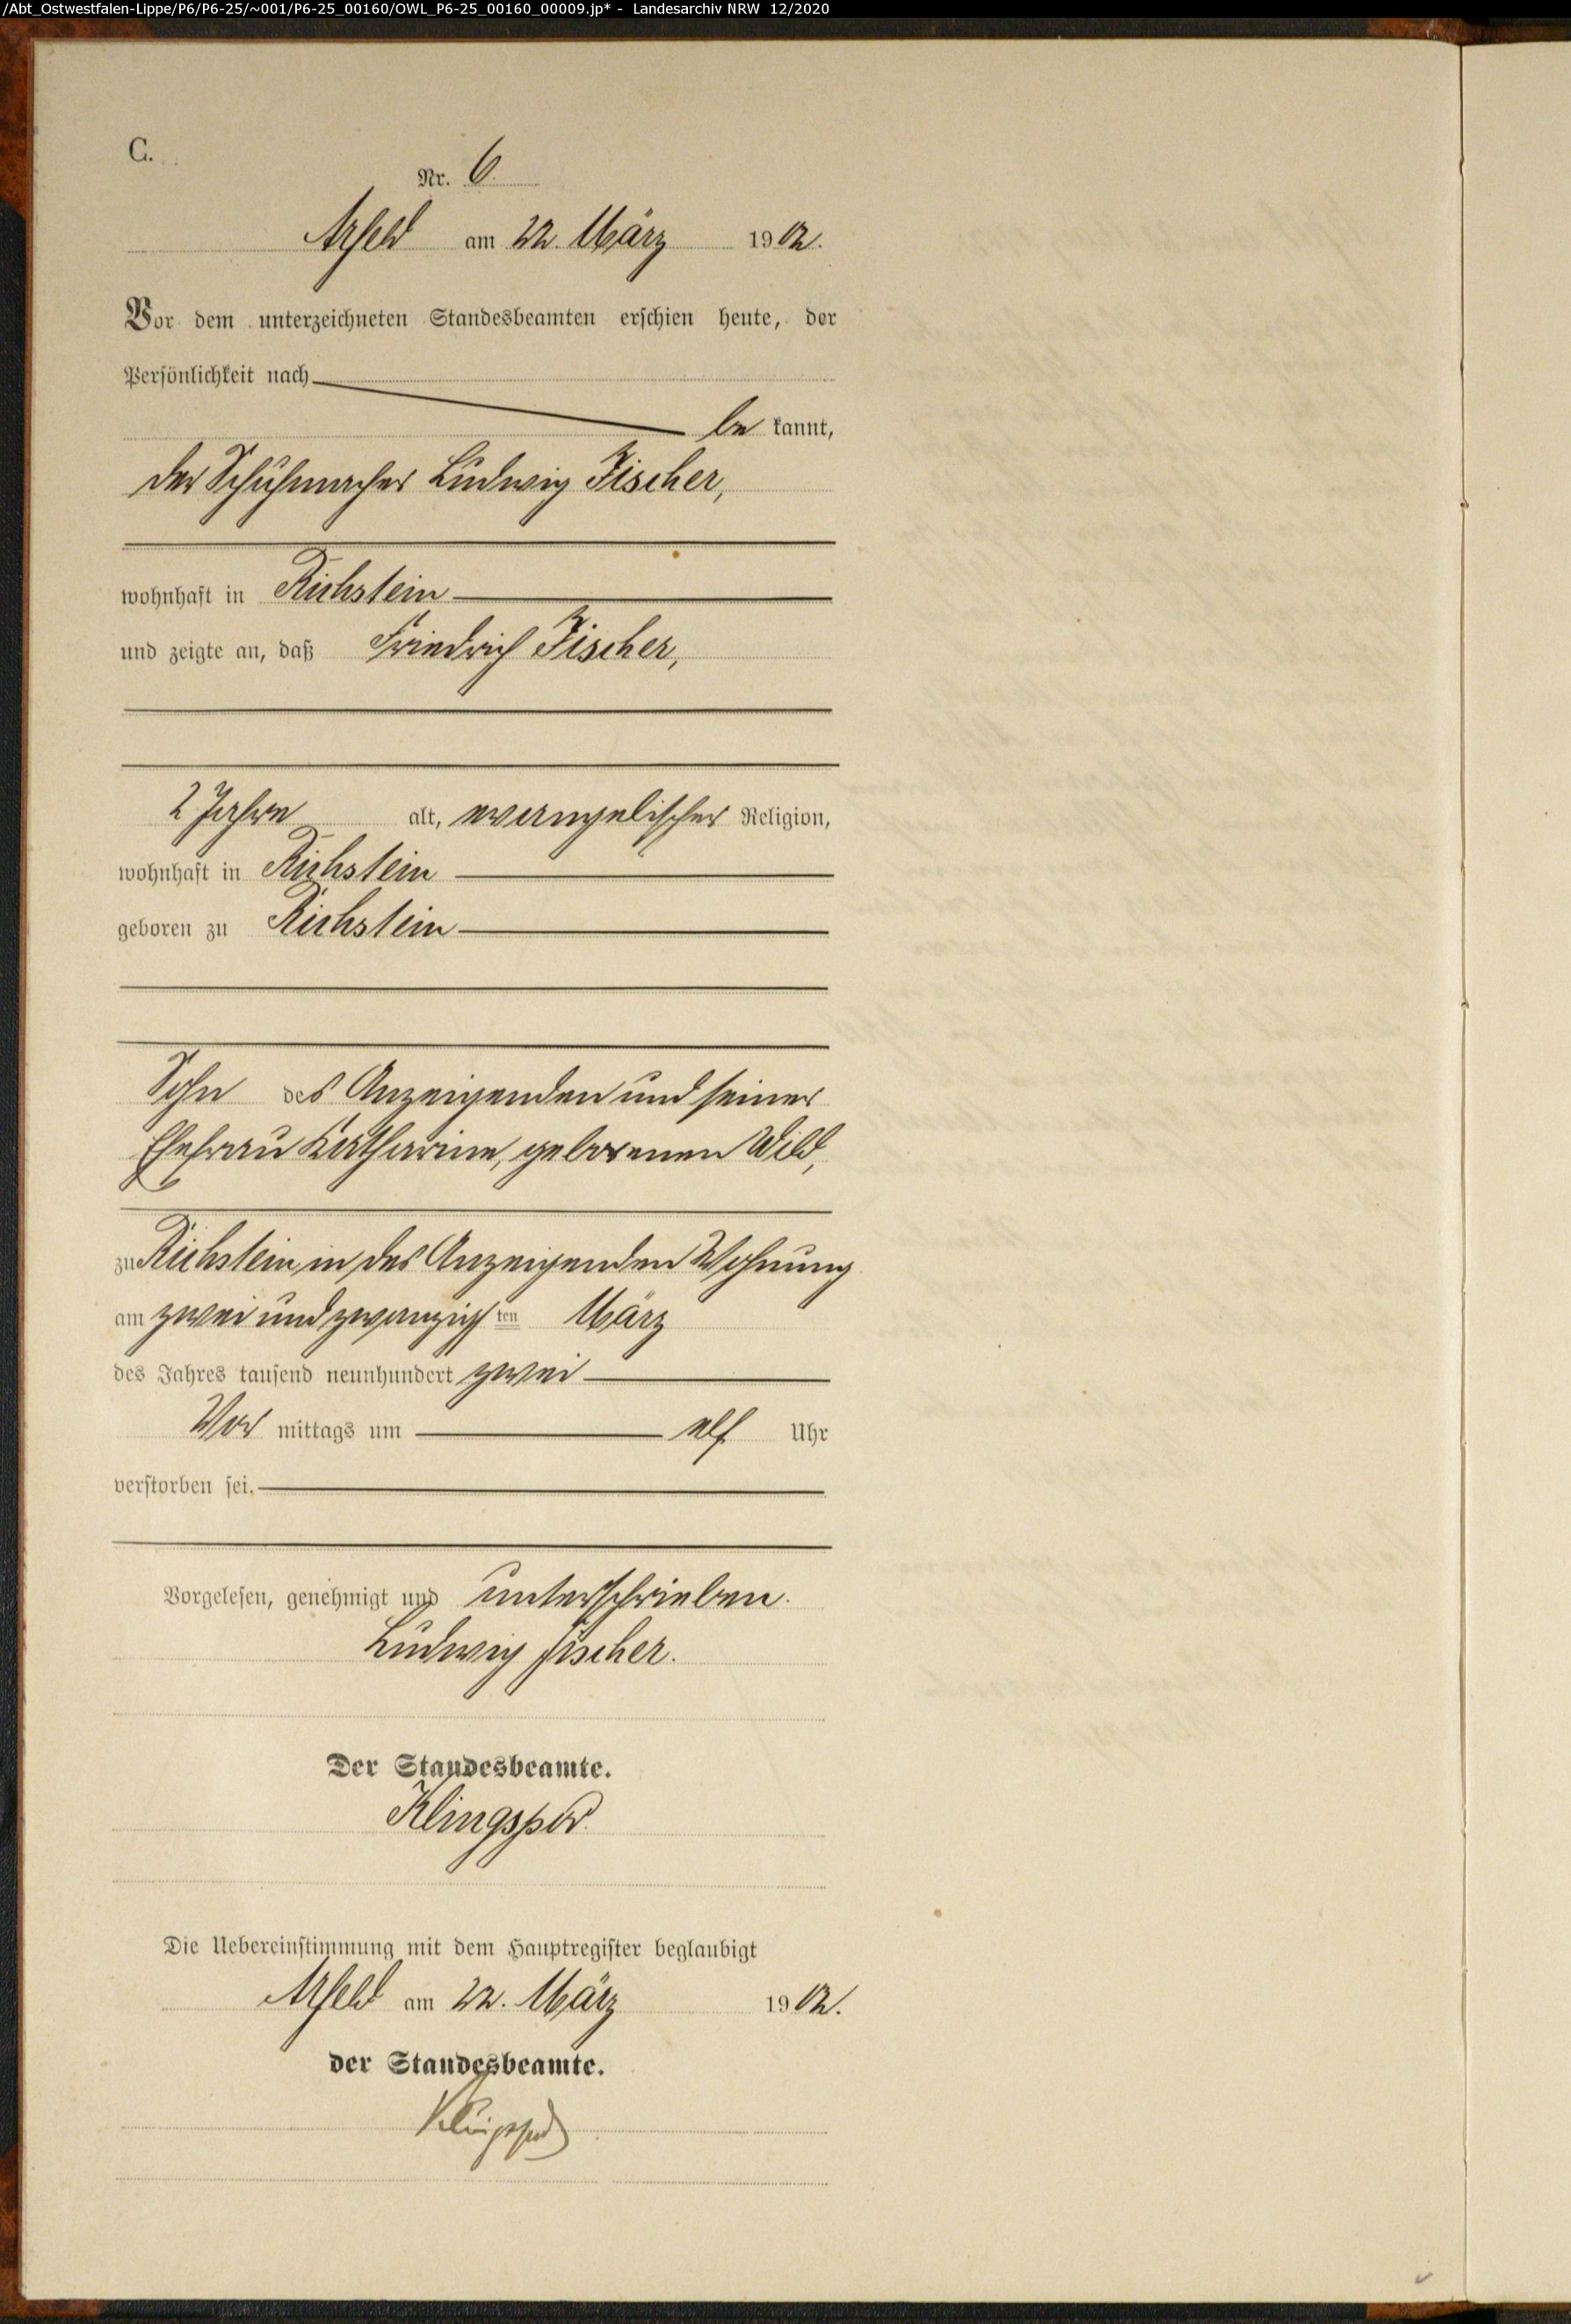 /Abt_Ostwestfalen-Lippe/P6/P6-25/~001/P6-25_00160/OWL_P6-25_00160_00009.jp* - Landesarchiv NRW 12/2020
C.
Nr. 6.
Arfeld am 22. März 1902.
Vor dem unterzeichneten Standesbeamten erschien heute, der
Persönlichkeit nach
be kannt,
der Schuhmacher Ludwig Fischer,
wohnhaft in Richstein
und zeigte an, daß Friedrich Fischer,
2 Jahre alt, evangelischer Religion,
wohnhaft in Richstein
geboren zu Richstein
Sohn des Anzeigenden und seiner
Ehefrau Katharine, geborenen Wild,
zu Richstein, in des Anzeigenden Wohnung
am zwei und zwanzigsten März
des Jahres tausend neunhundert zwei
Vor mittags um elf Uhr
verstorben sei.
Vorgelesen, genehmigt und unterschrieben.
Ludwig Fischer.
Der Standesbeamte.
Klingspor.
Die Uebereinstimmung mit dem Hauptregister beglaubigt
Arfeld am 22. März 1902.
der Standesbeamte.
Klingspor